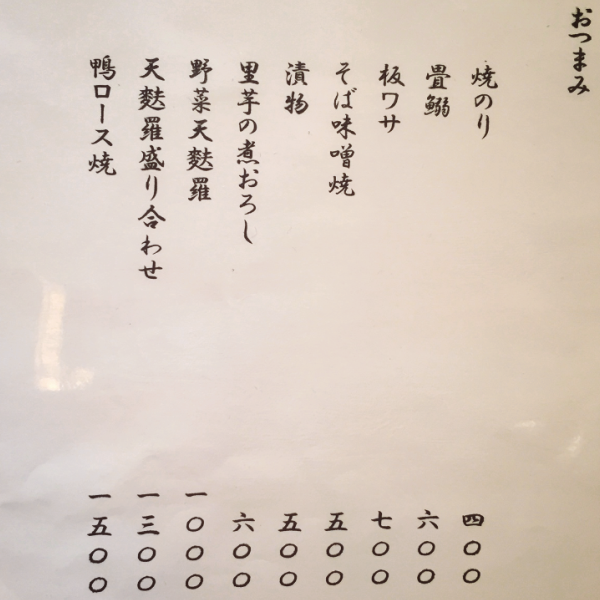 おつまみ
焼のり 四〇〇
畳鰯 六〇〇
板ワサ 七〇〇
そば味噌焼 五〇〇
漬物 五〇〇
里芋の煮おろし 六〇〇
野菜天麩羅 一〇〇〇
天麩羅盛り合わせ 一三〇〇
鴨ロース焼 一五〇〇